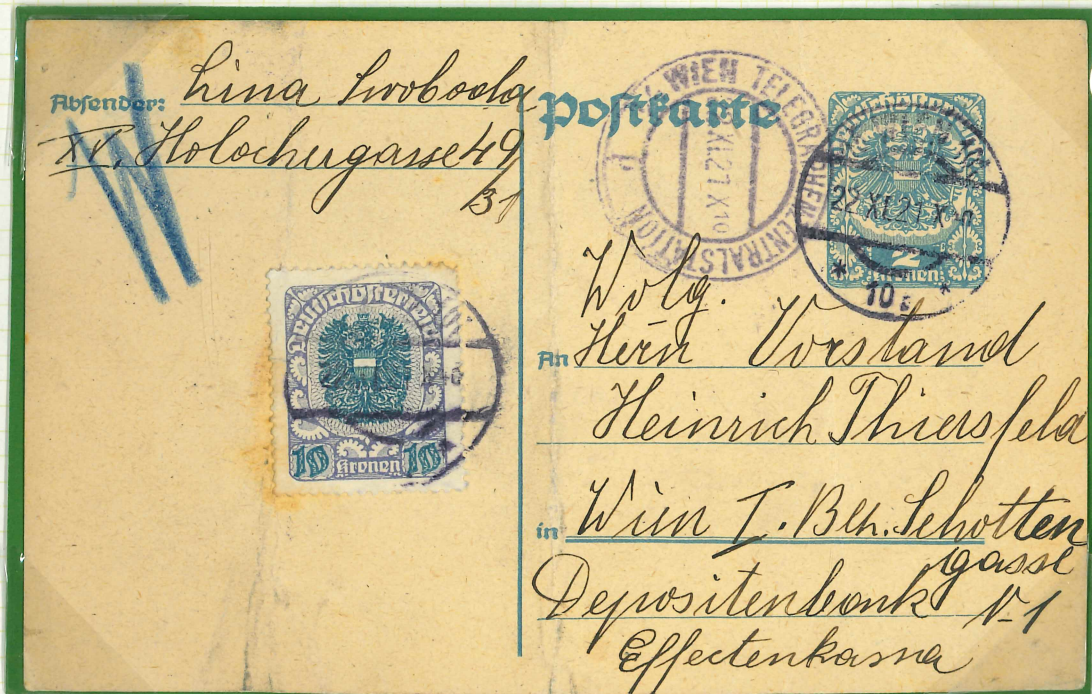 Absender: Lina Swoboda
XV, Holochergasse 49
31
Postkarte
WIEN TELEGRAPHEN
ZENTRALSTATION
XI.21 X10
22 XI.21 X
10
2
Kronen
Deutschösterreich
10 Kronen 10
Wolg.
An Herrn Vorstand
Heinrich Thiersfeld
in Wien I. Bez. Schotten
gasse
Depositenbank N-1
Effectenkassa